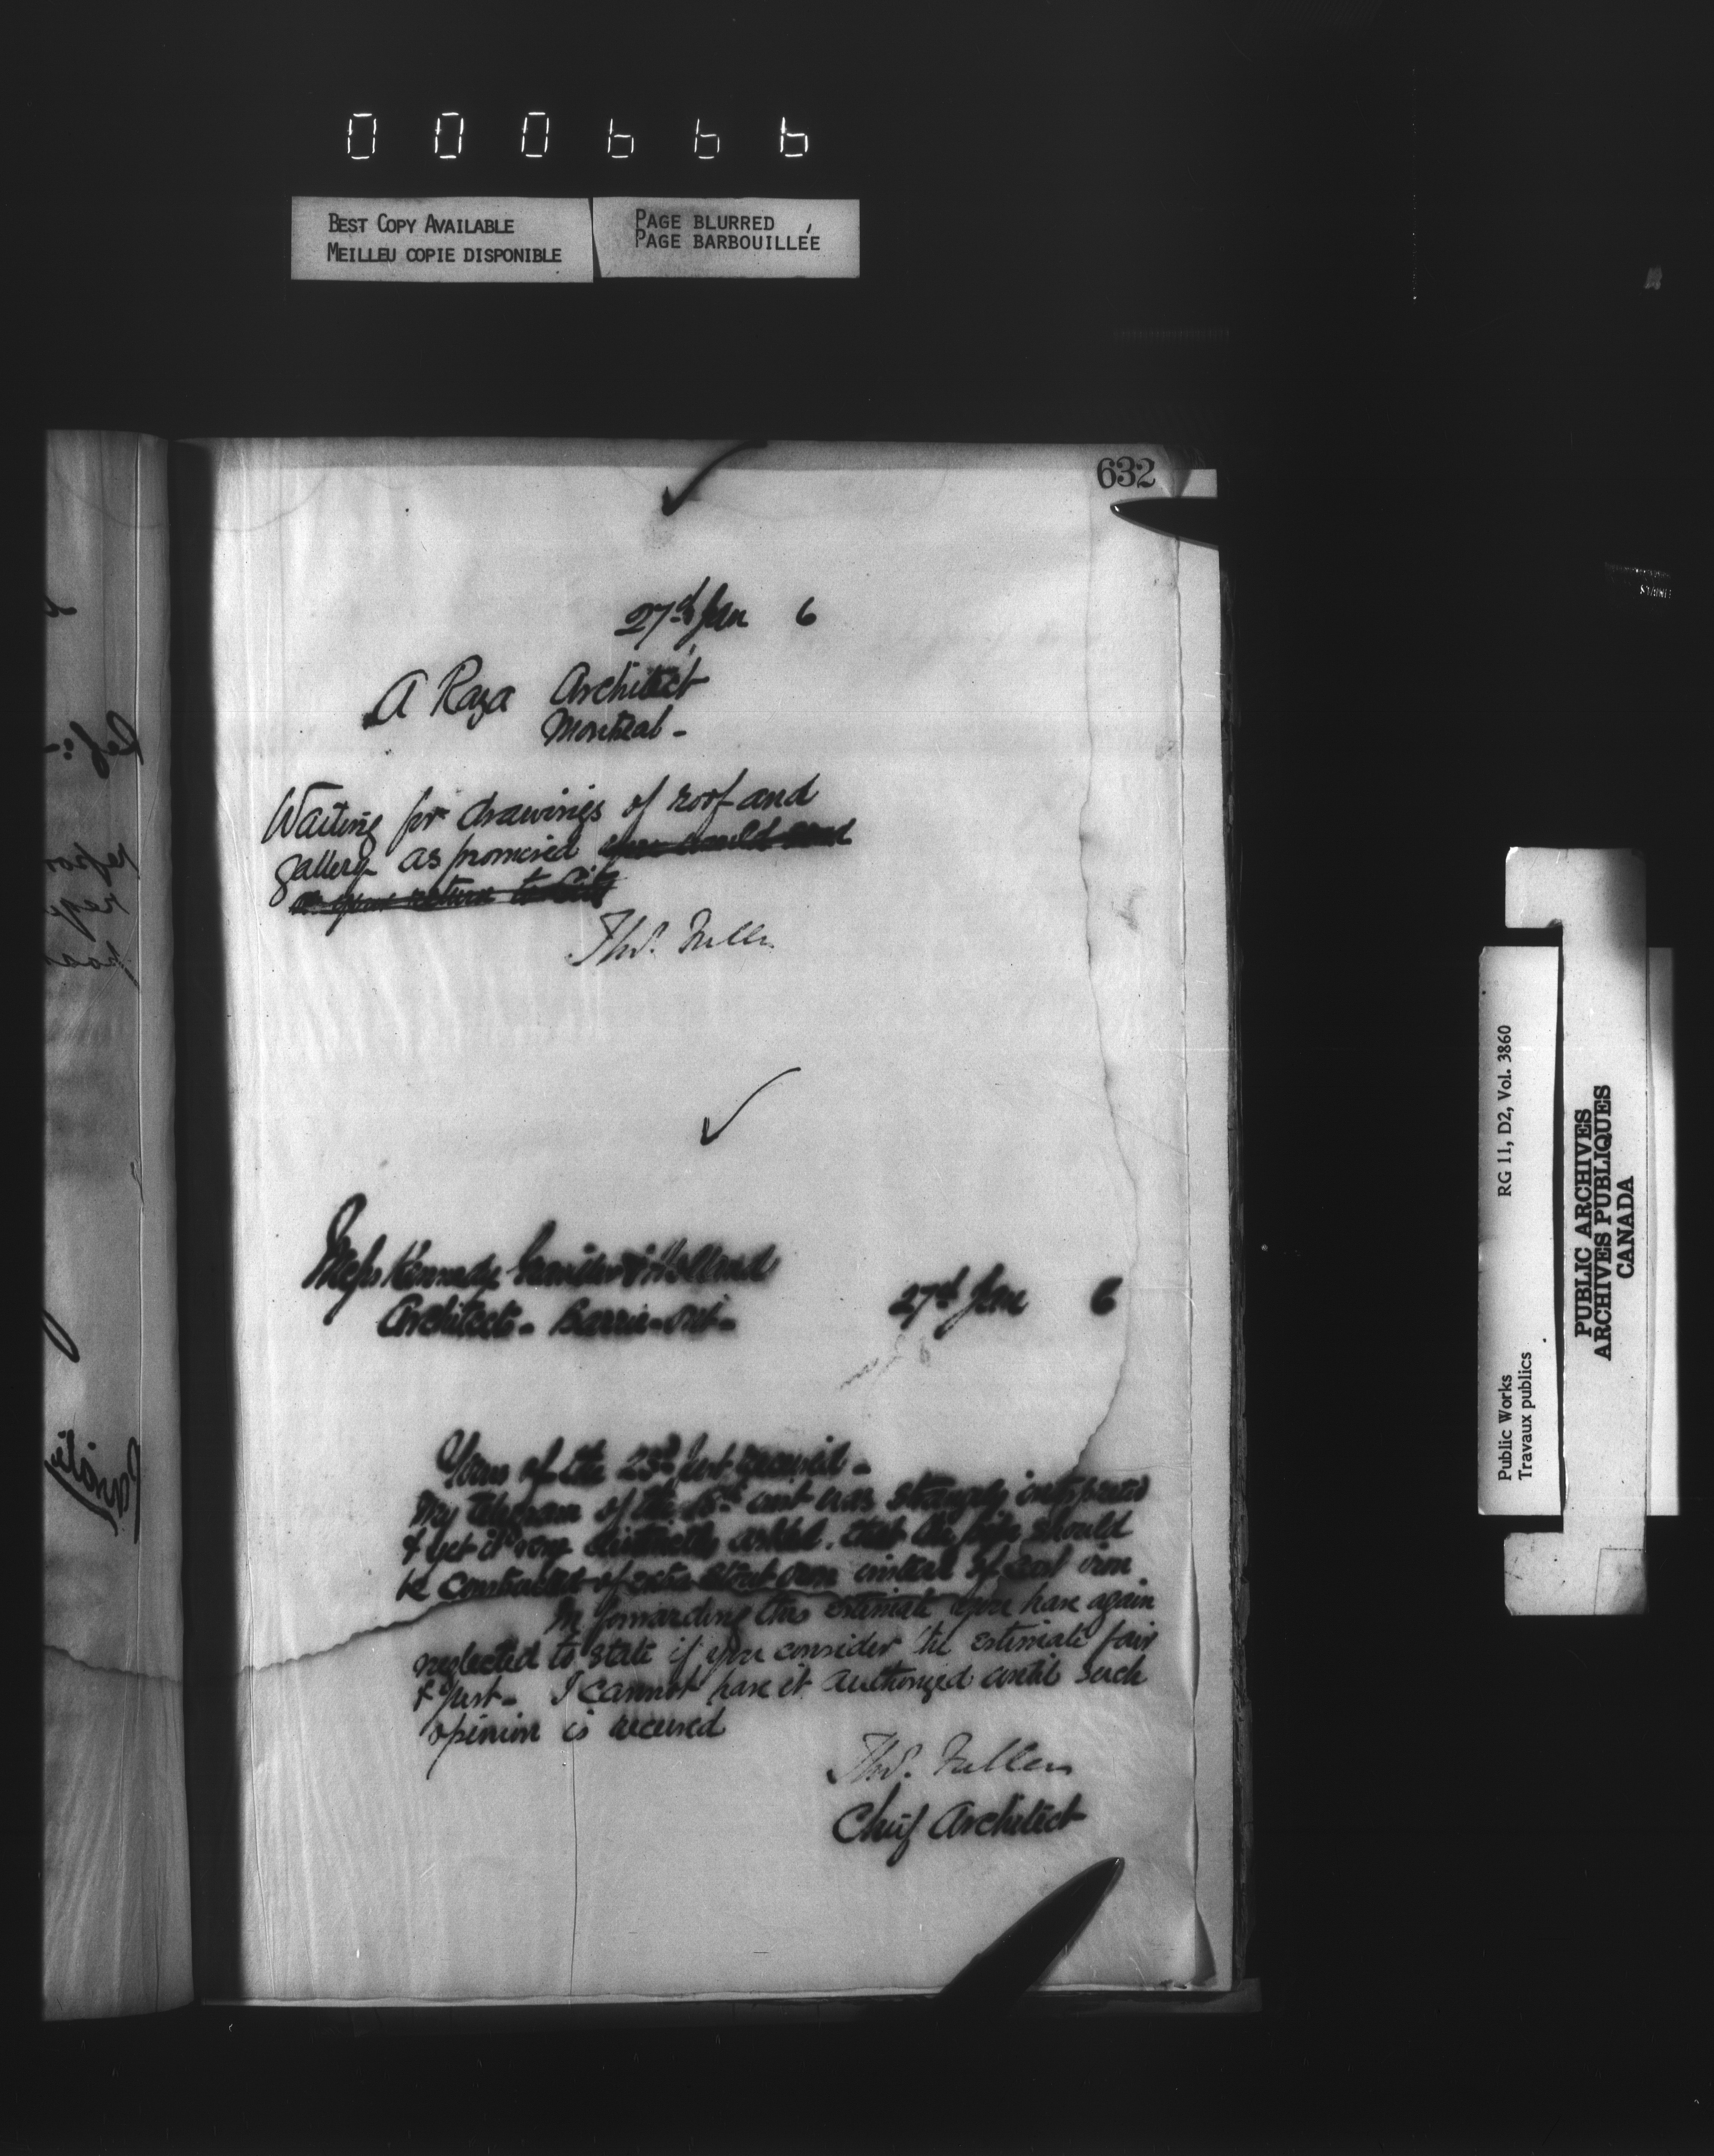 000666
BEST COPY AVAILABLE
MEILLEU COPIE DISPONIBLE
PAGE BLURRED
PAGE BARBOUILLÉE
632
27th Jan 6
A Raza Architect
Montreal -
Waiting for drawings of roof and
gallery as promised you would send
on your return to City
Thos. Fuller
Messrs Kennedy & Holland
Architects - Barrie - Ont -
27th Jan 6
Yours of the 23rd inst received -
My telegram of the 15th inst was strangely interpreted
& yet it very distinctly asked that the pipe should
be constructed of extra stout iron instead of cast iron
In forwarding this estimate you have again
neglected to state if you consider the estimate fair
& just - I cannot have it authorized until such
opinion is received
Thos. Fuller
Chief Architect
Public Works
Travaux publics
RG 11, D2, Vol. 3860
PUBLIC ARCHIVES
ARCHIVES PUBLIQUES
CANADA